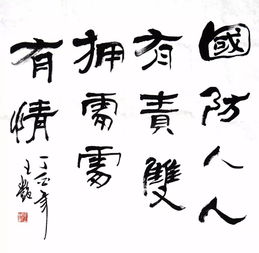 國防人人
有責雙
拥處處
有情
丁酉年
王